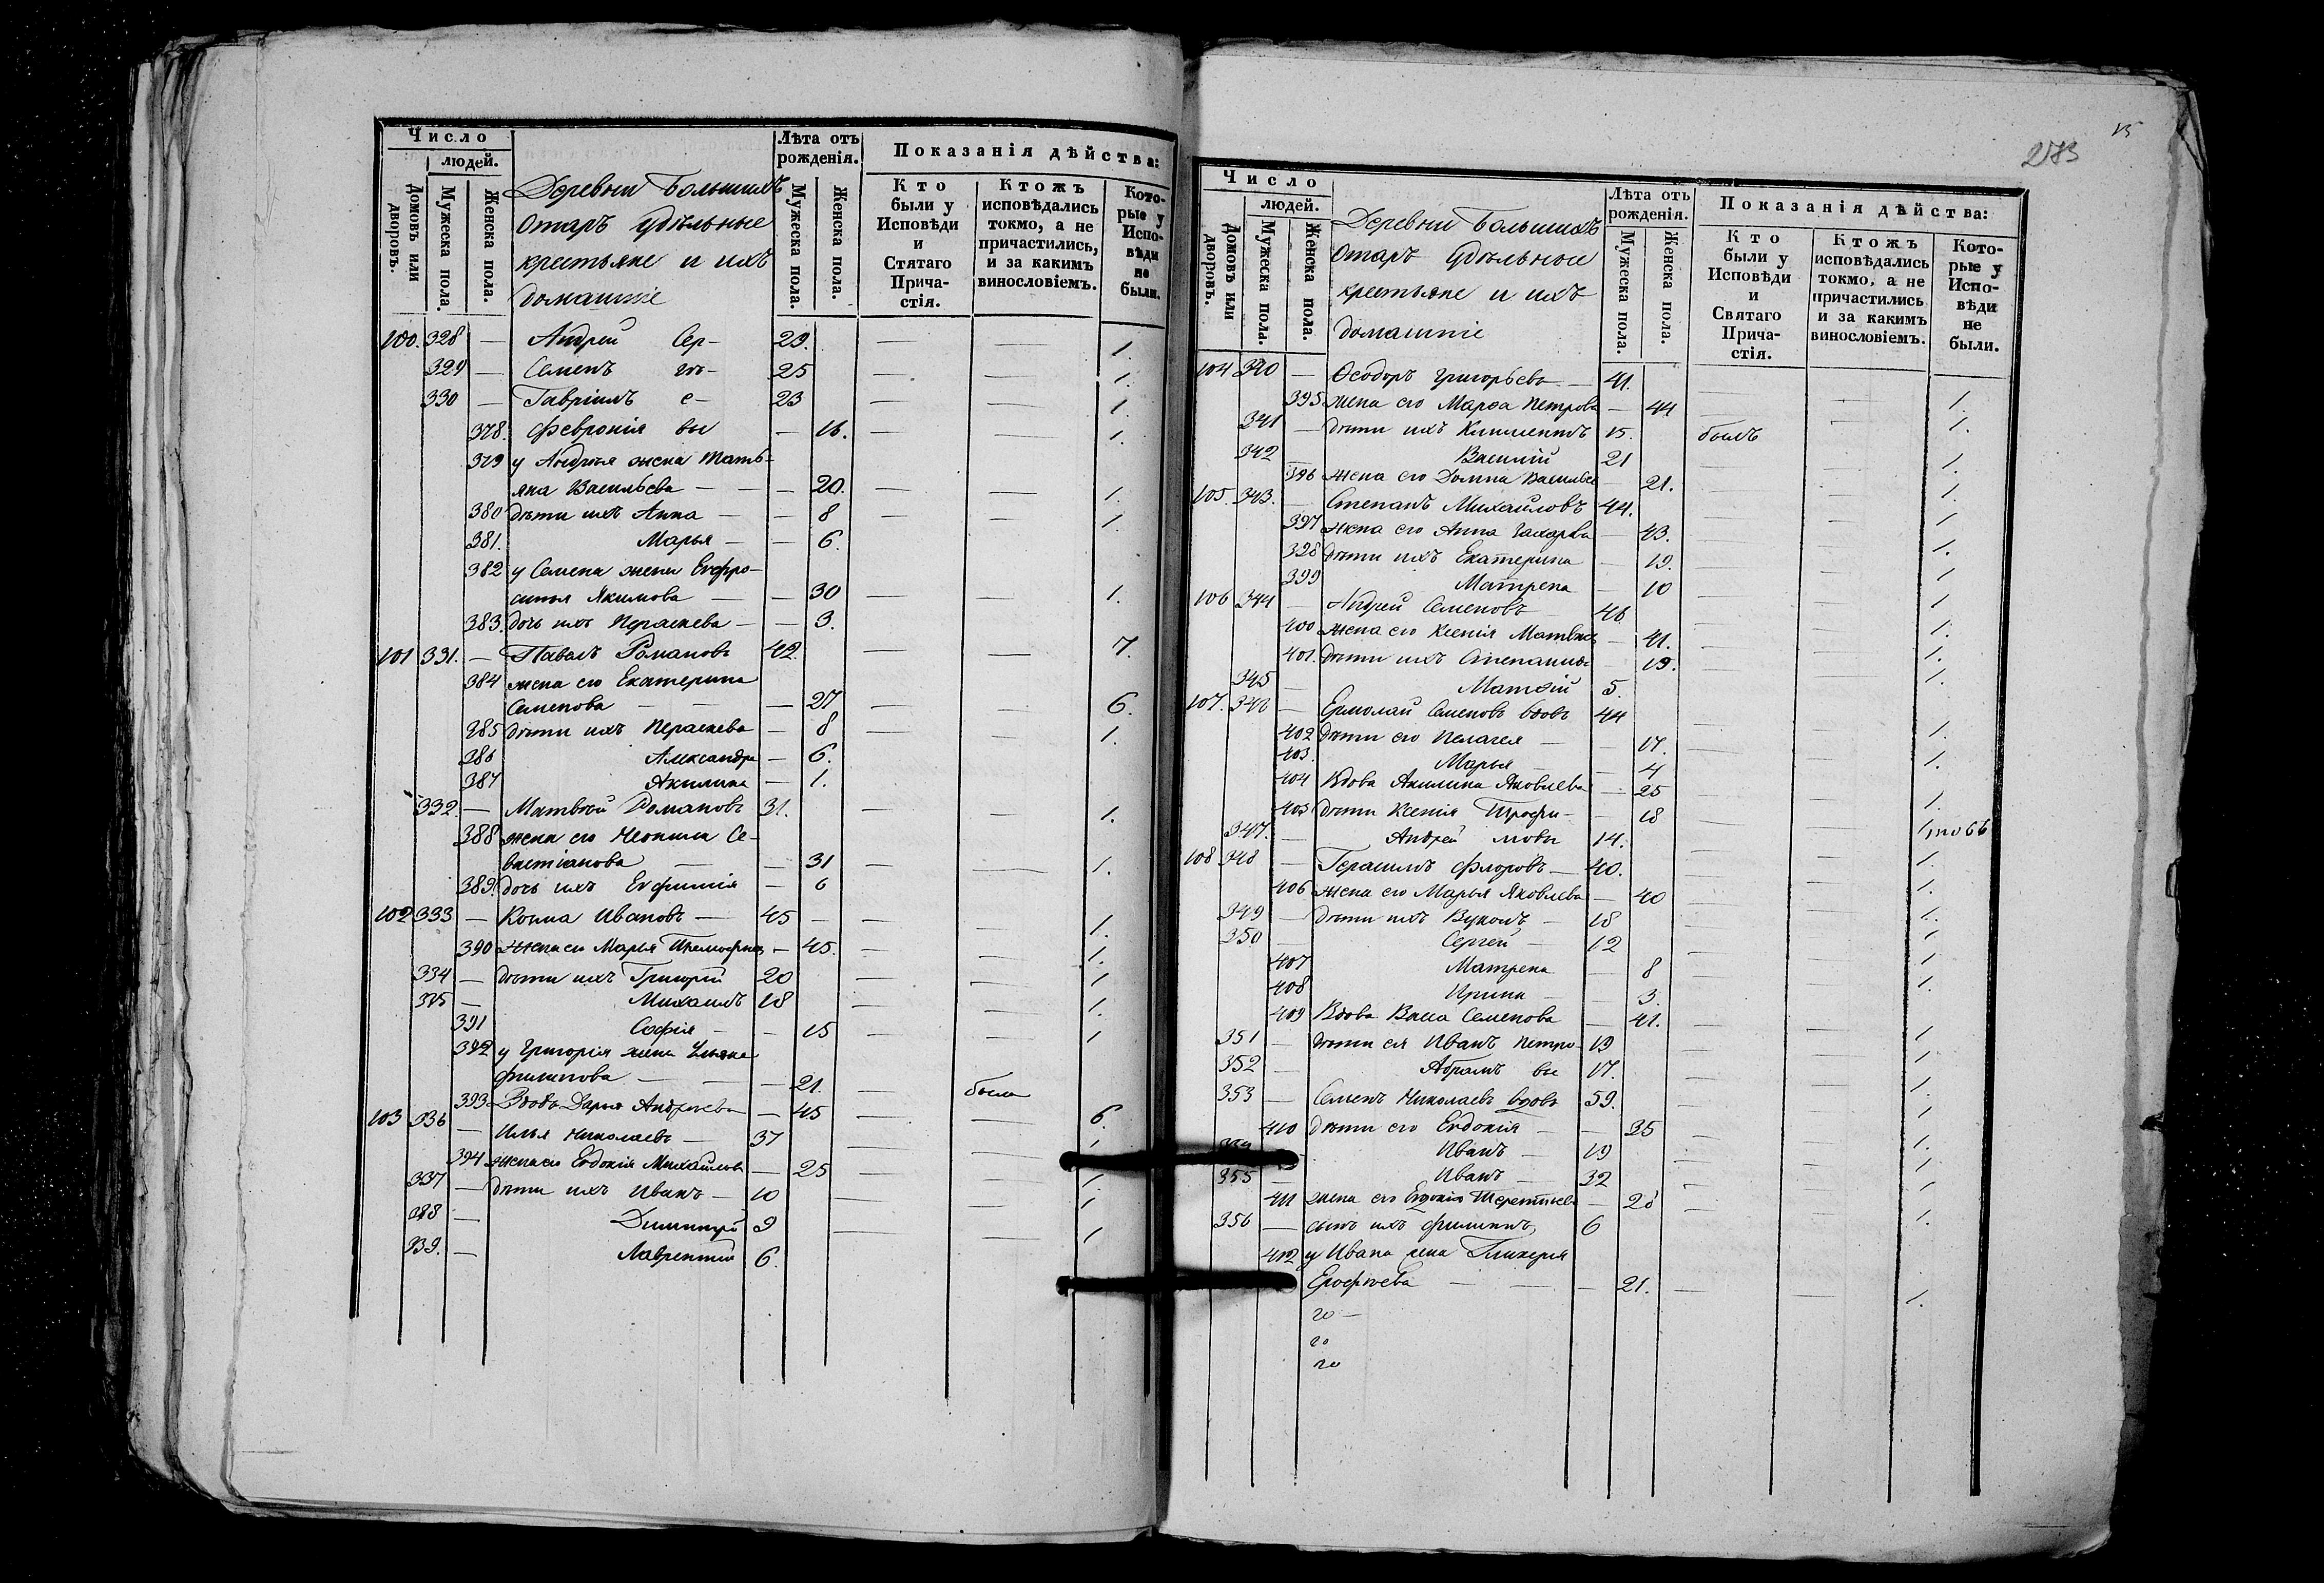 Число
людей.
Домовъ или дворовъ.
Мужеска пола.
Женска пола.
Деревни Большихъ
Отаръ удѣльные
крестьяне и ихъ
домашніе
Лѣта отъ рожденія.
Мужеска пола.
Женска пола.
Показанія дѣйства:
Кто были у Исповѣди и Стятаго Прича-стія.
Ктожъ исповѣдались токмо, а не причастились, и за какимъ винословіемъ.
Кото-рые у Испо-вѣди не были.
100. 328 — Андрей Сер- 29. — — 1.
329 — Семенъ 25 — — 1.
330 — Гавріилъ е- 23 — — 1.
378. Февронія вы — 16. — — 1.
379 у Андрея жена Тать-
яна Васильева — — — 20. — — 1.
380 дѣти ихъ Анна — — 8 — — 1.
381. Марья — — 6.
382 у Семена жена Евфро-
синья Якимова — — 30 — — 1.
383. дочь ихъ Параскева — — 3.
101 331. — Павелъ Романовъ 42. — — 7.
384 жена его Екатерина
Семенова — — — 27 — — 6.
385 дѣти ихъ Параскева — 8 — — 1.
386 Александра — 6.
387 Акилина — 1.
332. — Матвѣй Романовъ 31. — — 1.
388 жена его Се-
вастіанова — — 31 — — 1.
389. дочь ихъ Евфимія — 6
102 333 — Косма Ивановъ — 45 — — — 1.
390 жена его Марья Тимофеева — 45. — — 1.
334 — дѣти ихъ Григорій 20 — — 1
335 — Михаилъ 18 — — 1.
391 Софія — — 15 — — 1
392 у Григорія жена Ульяна
Филипова — — — 21. — была
393 Вдова Дарья Андреева — 45 — — 6.
103 336 — Илья Николаевъ — 37 — — 1
394 жена его Евдокія Михайлова — 25 — — 1.
337 — дѣти ихъ Иванъ — 10 — — 1
338 — Димитрій 9 — — 1
339. — Лаврентій 6.
15
273
Число
людей.
Домовъ или дворовъ.
Мужеска пола.
Женска пола.
Деревни Большихъ
Отаръ удѣльные
крестьяне и ихъ
домашніе
Лѣта отъ рожденія.
Мужеска пола.
Женска пола.
Показанія дѣйства:
Кто были у Исповѣди и Святаго Прича-стія.
Ктожъ исповѣдались токмо, а не причастились и за какимъ винословіемъ.
Кото-рые у Испо-вѣди не были.
104 340 — Ѳеодоръ Григорьевъ — 41. — — 1.
395 жена его Марѳа Петрова — 44 — — 1.
341 — дѣти ихъ Климентъ 15. былъ
342 — Василій 21 — — 1.
396 жена его Домна Васильева 21. — — 1.
105. 343. — Степанъ Михайловъ 44. — — 1
397 жена его Анна Захарова — 43. — — 1.
398 дѣти ихъ Екатерина — 19. — — 1
399 Матрена — 10 — — 1
106 344 — Андрей Семеновъ 46 — — 1.
400 жена его Ксенія Матвеева — 41. — — 1.
401. дѣти ихъ Степанида 19. — — 1.
345 — Матѳій 5.
107. 346 — Ермолай Семеновъ вдовъ 44 — — 1.
402 дѣти его Пелагея — — 17. — — 1.
403. Марья — — 4
404 Вдова Акилина Яковлева — 25 — — 1.
405 дѣти Ксенія Трофи- — 18 — — 1
347. — Андрей мовы 14. — — 1.
108 348 — Герасимъ Флоровъ — 40. — — 1.
406 жена его Марья Яковлева — 40 — — 1.
349 — дѣти ихъ Вуколъ — 18 — — 1
350 — Сергей — 12 — — 1.
407 Матрена — 8
408 Ирина — — 3.
409 Вдова Васса Семенова — 41. — — 1
351 — дѣти ея Иванъ Петро- 19 — — 1
352 — Абрамъ вы 17. — — 1.
353 — Семенъ Николаевъ вдовъ 59. — — 1
410 дѣти его Евдокія — — 35 — — 1.
354 — Иванъ — 19 — — 1
355 — Иванъ — 32 — — 1
411 жена его Евдокія Терентьева — 28 — — 1.
356 — сынъ ихъ Филиппъ 6
412 у Ивана жена Гликерія
Ерофѣева — — — 21. — — 1.